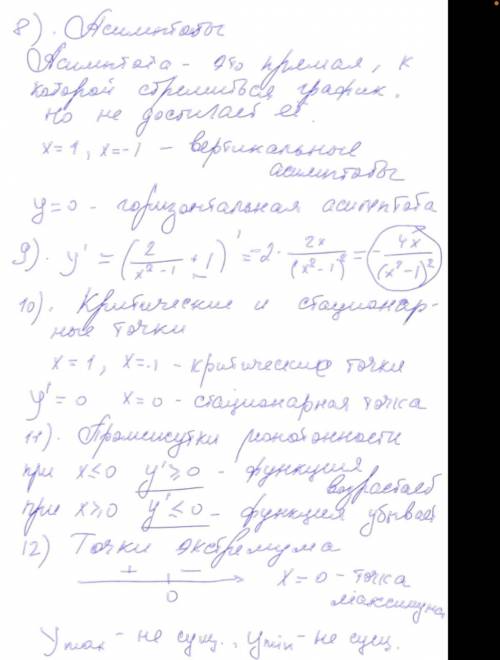 8). Асимптоты
Асимптота - это прямая, к
которой стремиться график,
но не достигает её.
x=1, x=-1 - вертикальные
асимптоты
y=0 - горизонтальная асимптота
9). y' = (2/(x²-1) + 1)' = -2 · 2x/(x²-1)² = - 4x/(x²-1)²
10). Критические и стационар-
ные точки
x=1, x=-1 - критические точки
y'=0 x=0 - стационарная точка
11). Промежутки монотонности
при x≤0 y'≥0 - функция
возрастает
при x≥0 y'≤0 - функция убывает
12) Точки экстремума
+ - x=0 - точка
0 максимума
y max - не сущ., y min - не сущ.